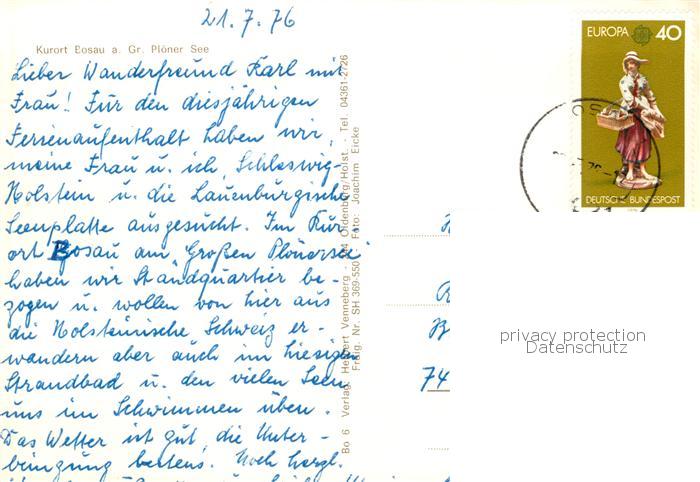 21.7.76
Kurort Bosau a. Gr. Plöner See
Lieber Wanderfreund Karl mit
Frau! Für den diesjährigen
Ferienaufenthalt haben wir,
meine Frau u. ich, Schleswig-
Holstein u. die Lauenburgische
Seenplatte ausgesucht. Im Kur-
ort Bosau am "Großen Plönersee"
haben wir Standquartier be-
zogen u. wollen von hier aus
die Holsteinische Schweiz er-
wandern aber auch im hiesigen
Strandbad u. den vielen Seen
uns im Schwimmen üben.
Das Wetter ist gut, die Unter-
bringung bestens. Noch herzl.
Bo 6 Verlag: Herbert Venneberg - 244 Oldenburg/Holst. - Tel. 04361-2726
Freig. Nr. SH 369-550 Foto: Joachim Eicke
EUROPA 40
DEUTSCHE BUNDESPOST
74
privacy protection
Datenschutz